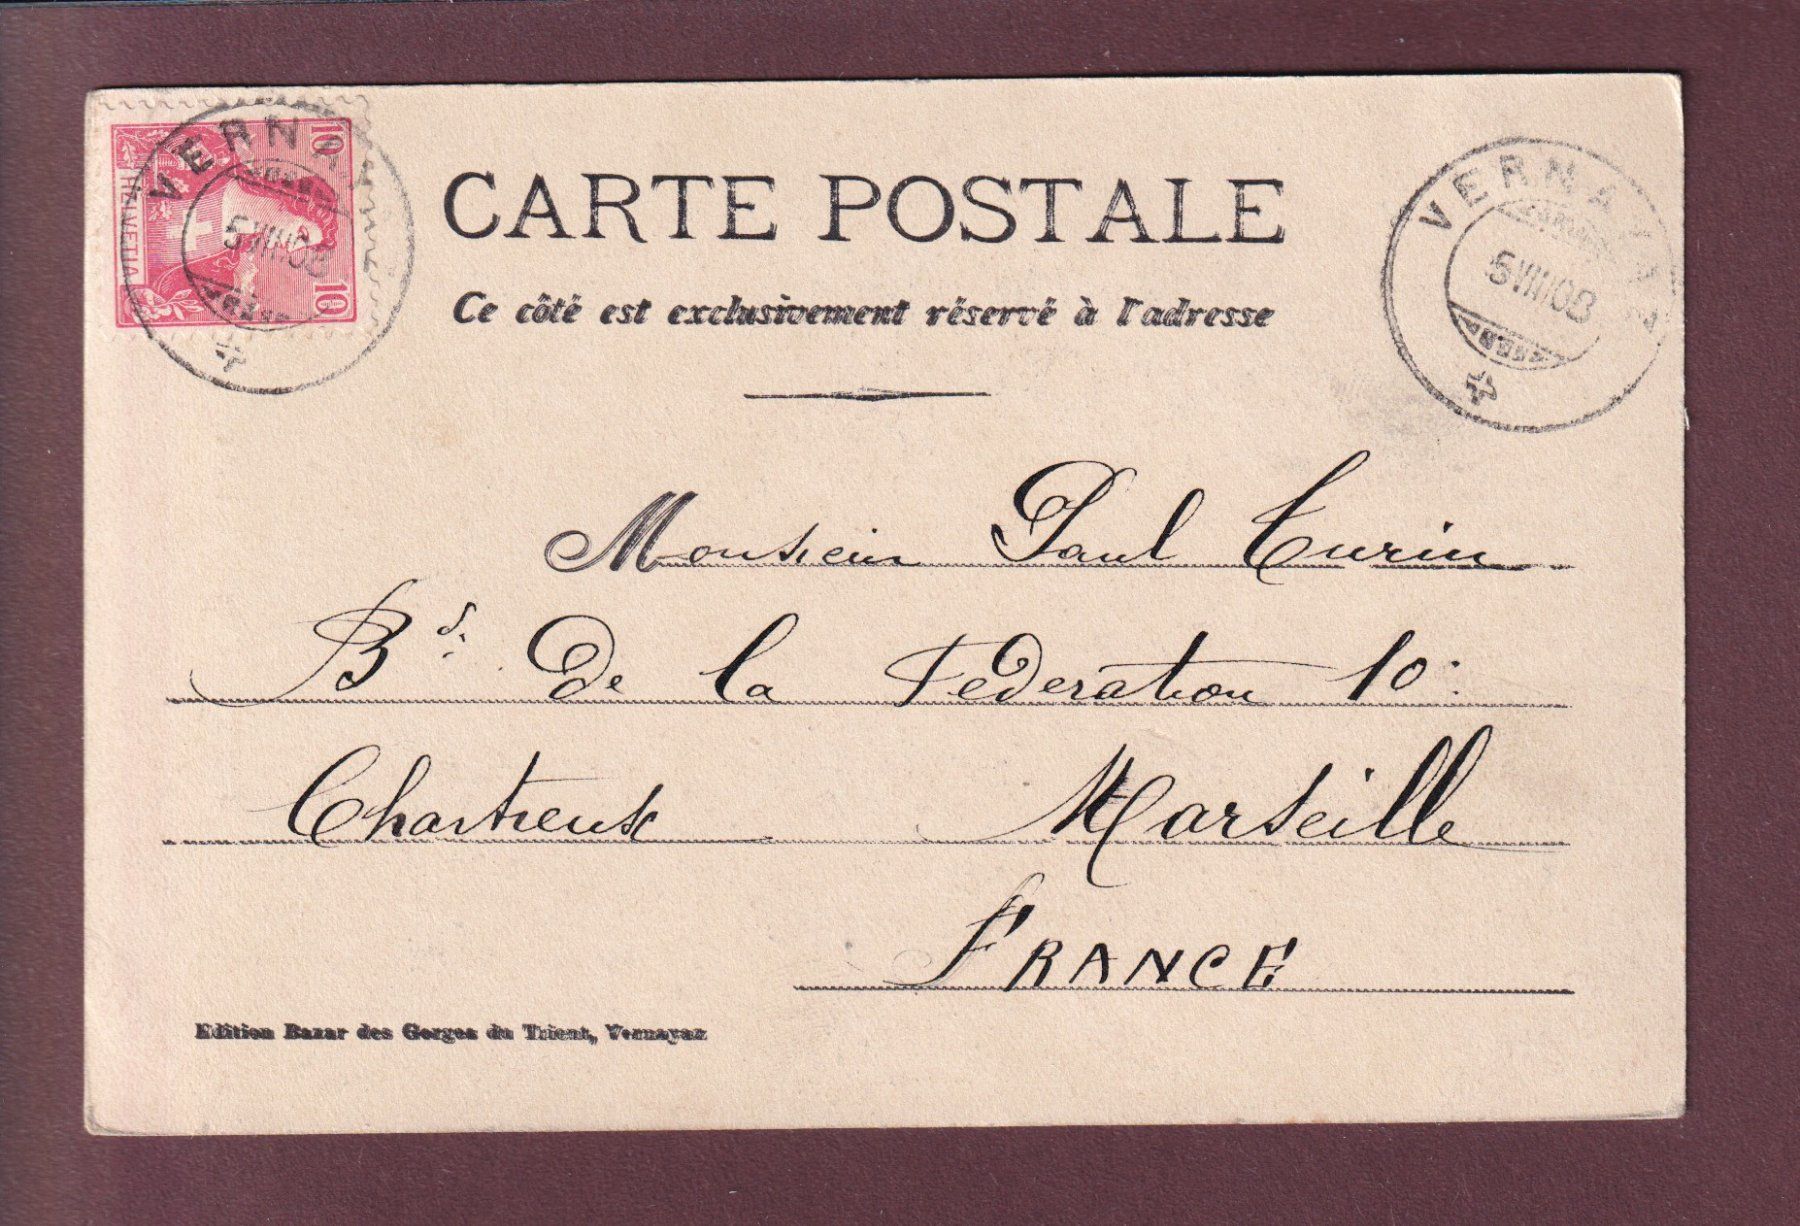 10
HELVETIA
10
VERNAYAZ
5 VIII 08
CARTE POSTALE
Ce côté est exclusivement réservé à l'adresse
VERNAYAZ
5 VIII 08
Monsieur Paul Turin
Bd. de la Federation 10.
Chartreux Marseille
FRANCE
Edition Bazar des Gorges du Trient, Vernayaz